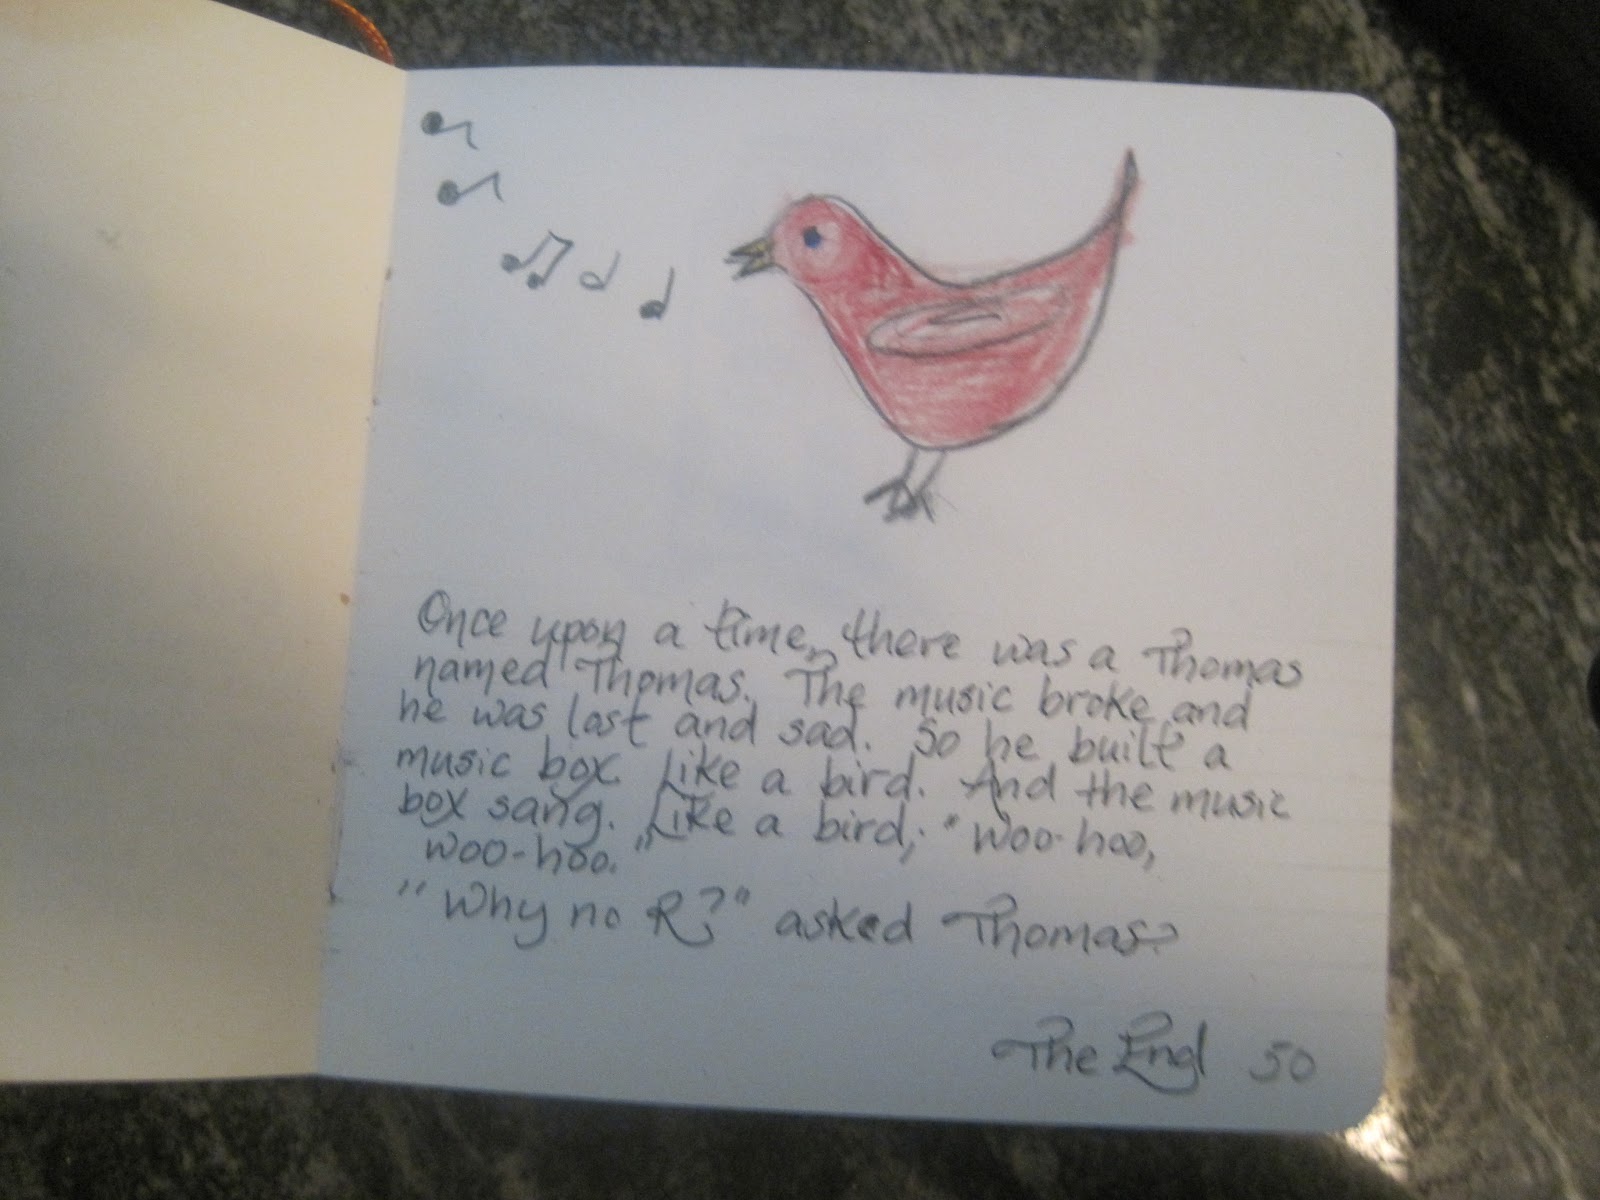 Once upon a time, there was a Thomas
named Thomas. The music broke and
he was lost and sad. So he built a
music box. Like a bird. And the music
box sang. Like a bird; "Woo-hoo,
woo-hoo."
"Why no R?" asked Thomas?
The End 50